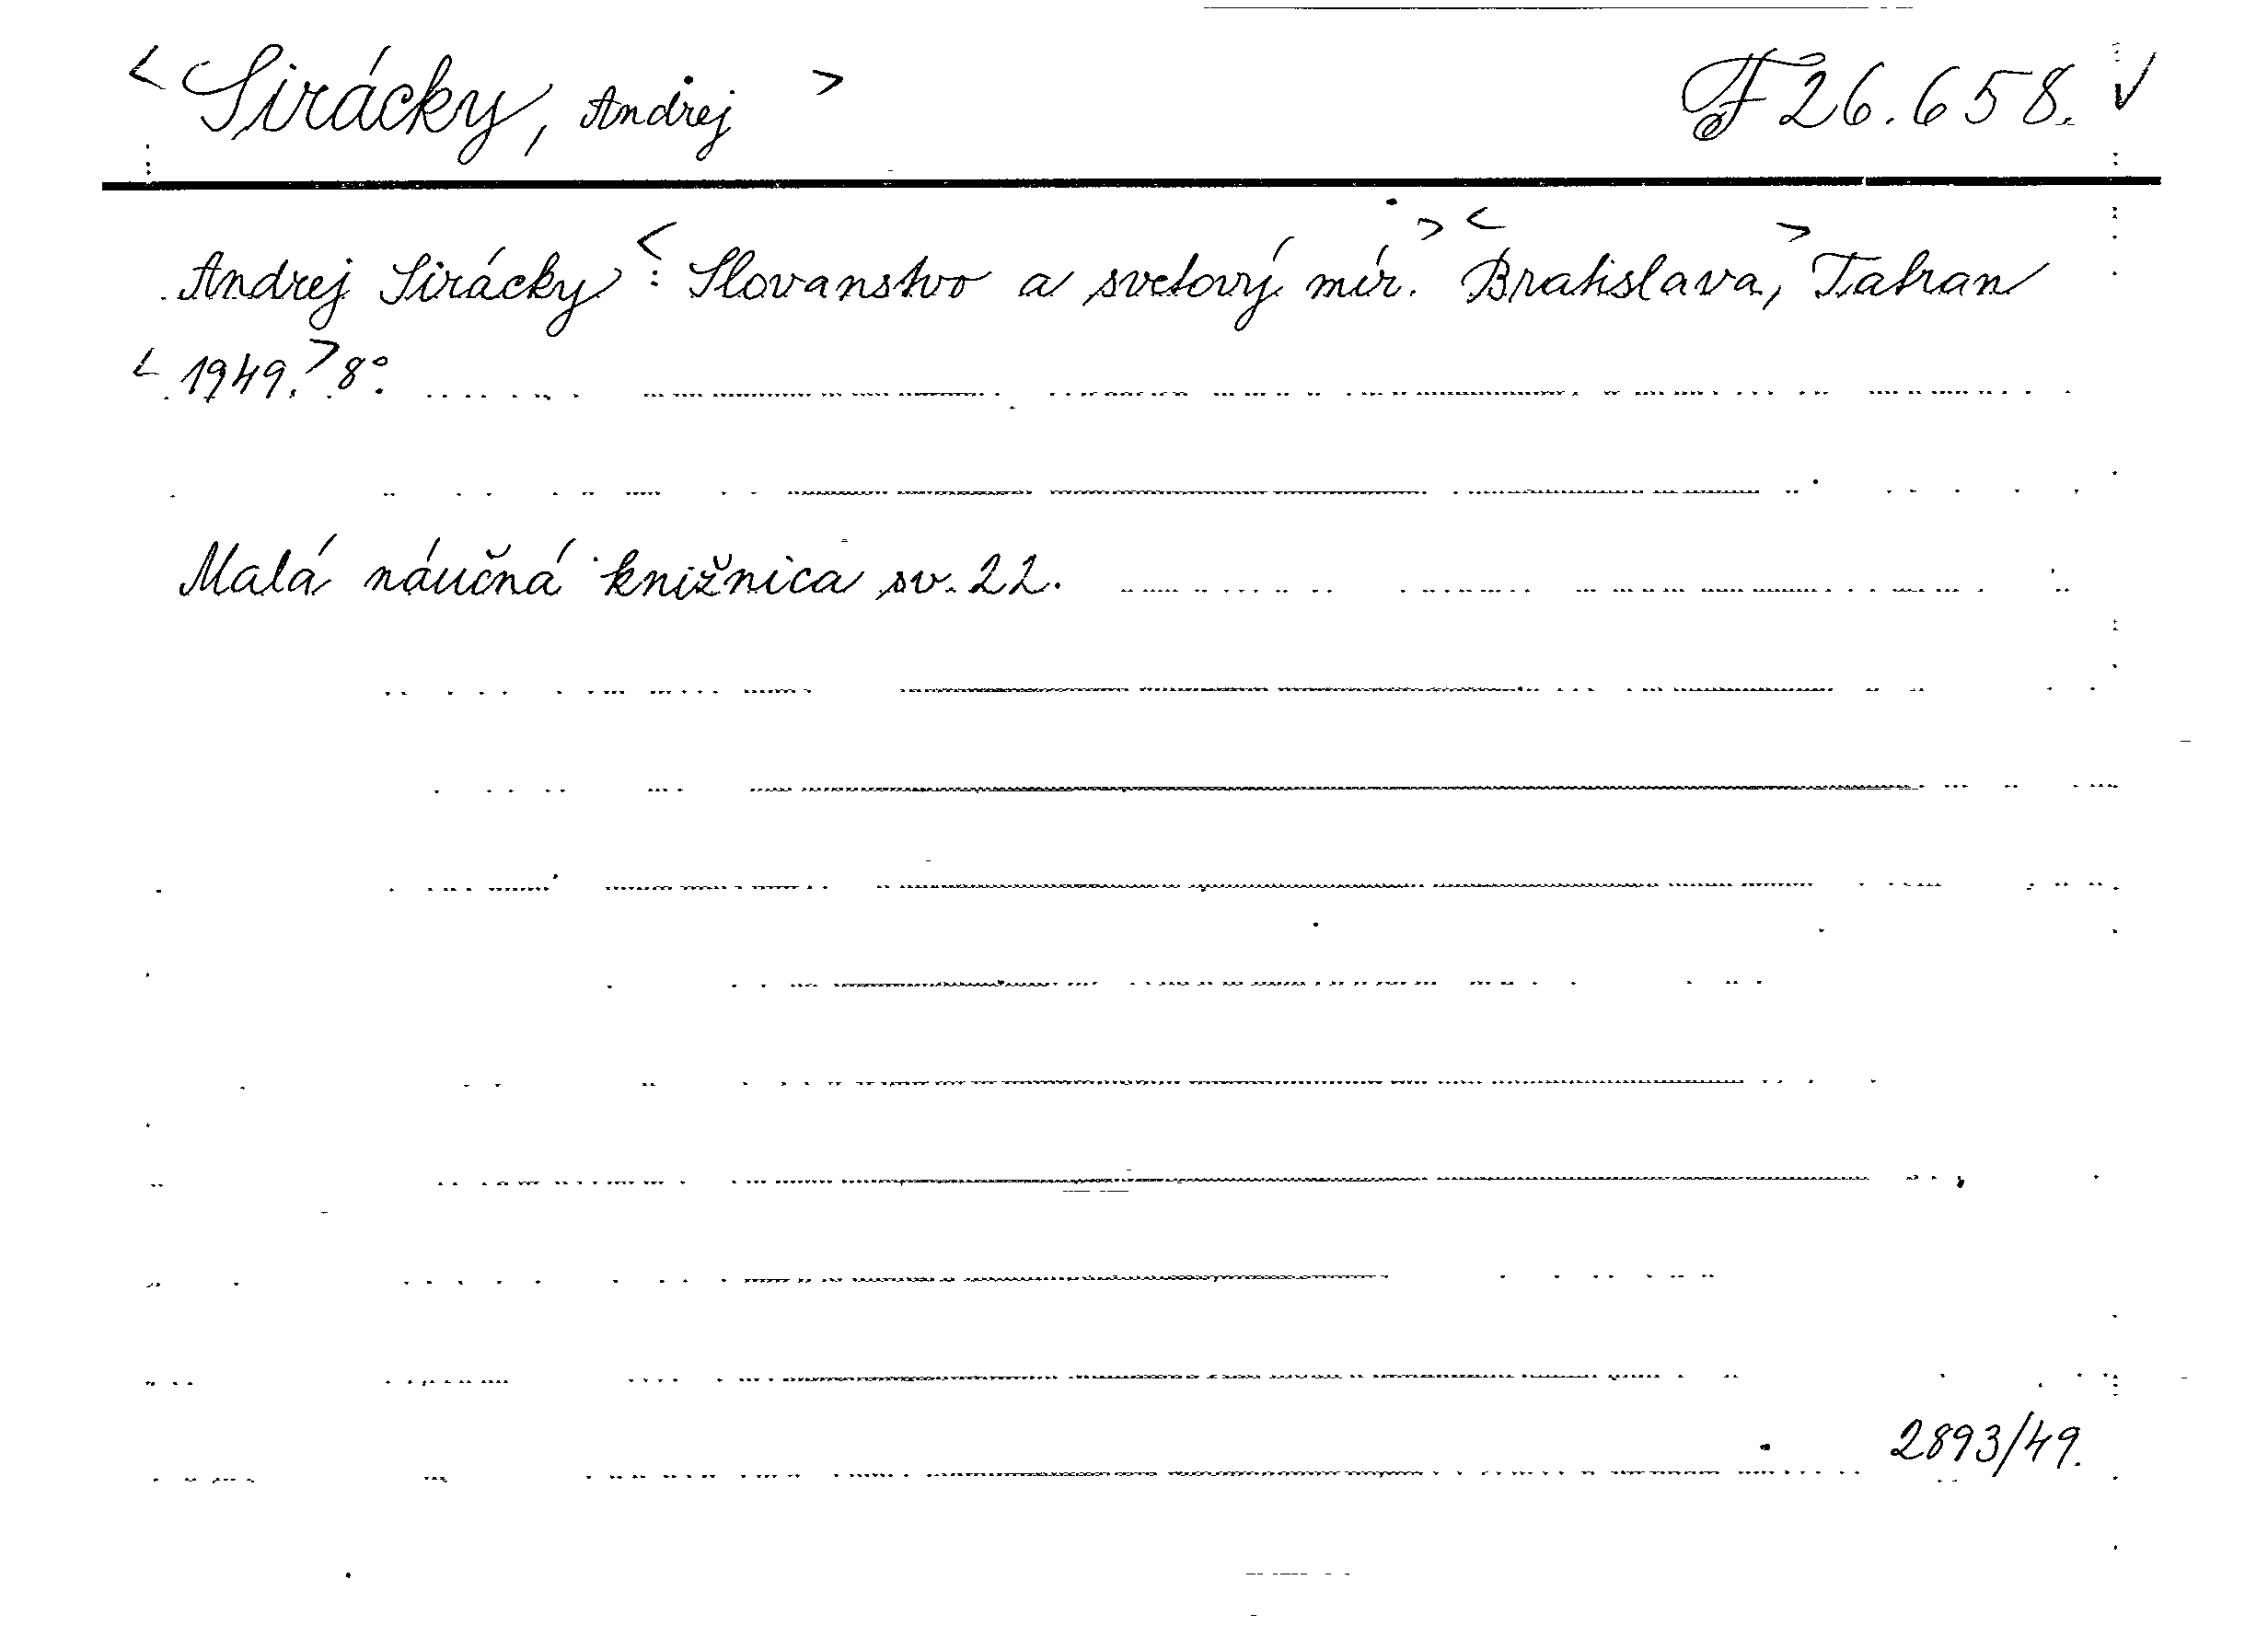 < Sirácky, Andrej > F 26.658. ✓
Andrej Sirácky <: Slovanstvo a svetový mír. > < Bratislava, > Tatran
< 1949. > 8°.
Malá náučná knižnica sv. 22.
2893/49.